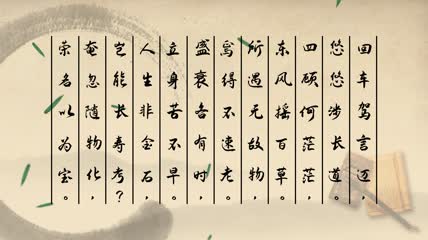 回车驾言迈，
悠悠涉长道。
四顾何茫茫，
东风摇百草。
所遇无故物，
焉得不速老。
盛衰各有时，
立身苦不早。
人生非金石，
岂能长寿考？
奄忽随物化，
荣名以为宝。